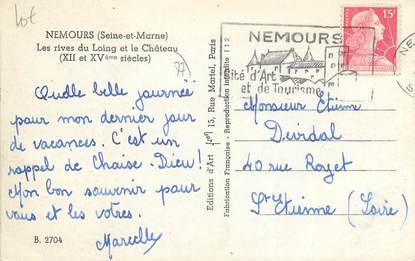 Lot
NEMOURS (Seine-et-Marne)
Les rives du Loing et le Château
(XII et XVème siècles)
77
Quelle belle journée
pour mon dernier jour
de vacances. C'est un
rappel de Chaise-Dieu!
Mon bon souvenir pour
vous et les votres.
Marcelle
B. 2704
Editions d'Art
15, Rue Martel, Paris
Fabrication Française - Reproduction interdite 112
NEMOURS
Cité d'Art
et de Tourisme
15F
NE
Monsieur Etienne
Devidal
40 rue Royet
St Etienne (Loire)